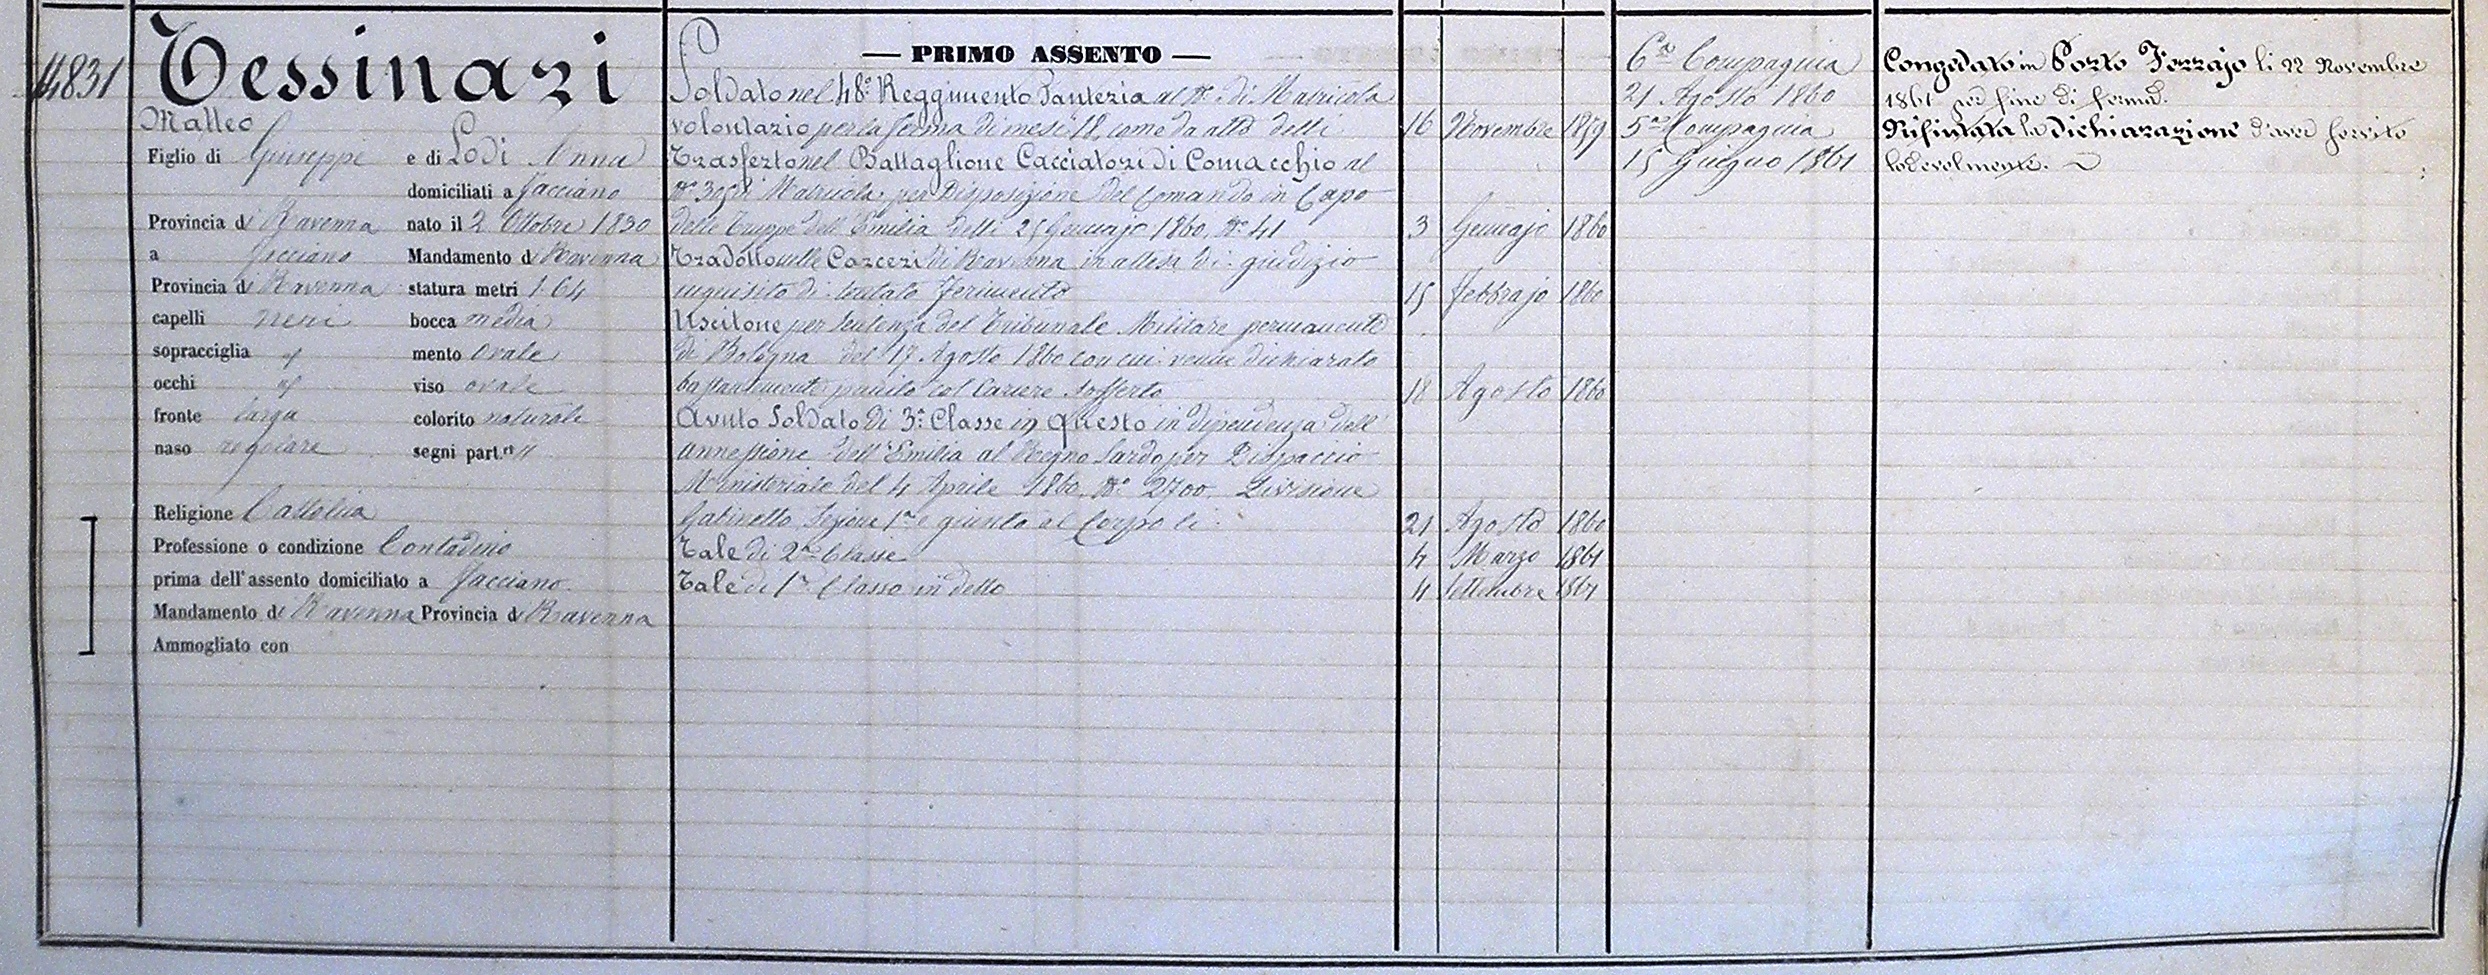 14831
Tessinari
Matteo
Figlio di Giuseppe e di Lodi Anna
domiciliati a Jacciano
Provincia di Ravenna nato il 2 Ottobre 1830
a Jacciano Mandamento di Ravenna
Provincia di Ravenna statura metri 1.64
capelli neri bocca media
sopracciglia id mento ovale
occhi id viso ovale
fronte larga colorito naturale
naso regolare segni part.ri //
Religione Cattolica
Professione o condizione Contadino
prima dell'assento domiciliato a Jacciano
Mandamento di Ravenna Provincia di Ravenna
Ammogliato con
— PRIMO ASSENTO —
Soldato nel 48° Reggimento Fanteria al N° di Matricola
volontario per la ferma di mesi 18, come da atto delli 16 Novembre 1859
Trasferto nel Battaglione Cacciatori di Comacchio al
N° di Matricola per Disposizione del Comando in Capo
delle Truppe dell'Emilia delli 25 Gennajo 1860, N° 41 3 Gennajo 1860
Tradotto nelle Carceri di Ravenna in attesa di giudizio
inquisito di tentato ferimento 15 febbrajo 1860
Uscitone per Sentenza del Tribunale Militare permanente
di Bologna del 17 Agosto 1860 con cui venne dichiarato
bastantemente punito col Carcere sofferto 18 Agosto 1860
Avuto Soldato di 3a Classe in questo in dipendenza dell'
annessione dell'Emilia al Regno Sardo per Dispaccio
Ministeriale del 4 Aprile 1860, N° 2700, Divisione
Gabinetto Sezione 1a e giunto al Corpo li 21 Agosto 1860
Tale di 2a Classe 4 Marzo 1861
Tale di 1a Classe in detto 4 Settembre 1861
6a Compagnia
21 Agosto 1860
5a Compagnia
15 Giugno 1861
Congedato in Porto Ferrajo li 22 Novembre
1861 per fine di ferma.
Rifiutata la dichiarazione d'aver servito
lodevolmente.